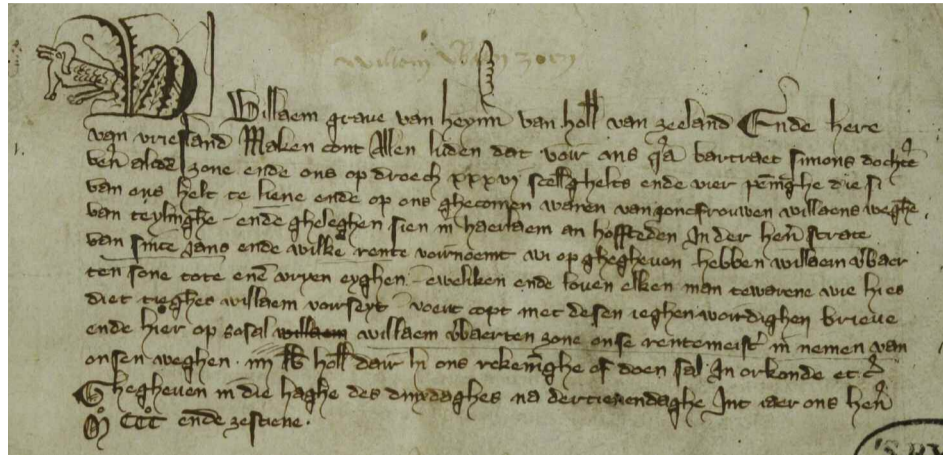 Willem
Willaem graue van heyn̄ van holl̄ van zeeland Ende here
van vriesland Maken cont Allen luden dat voir ons q̄a bartraet simons dochte͛
ende ons op droech xxxvi scell̄ghelts ende vier pen̄īghe die si
van ons helt te liene ende op ons ghecomen waren van joncfrouwen willaems weghe
van teylinghe ende gheleghen sien in haerlaem an hoffsteden In der hen̄ strate
van sinte jans ende wilke rente voirnoemt wi op ghegheven hebben willaem
ten sone tote enē vryen eyghen eweliken ende louen elken man te warene wie hi es
diet tieghes willaem voirseyt copt met desen ieghenwoirdighen brieue
ende hier op so sal willaem willaem zone onse rentemeist͛ in nemen van
onsen weghen iiij holl̄ dair hi ons rekenīghe of doen sal In orkonde et c͛
Ghegheven in die haghe des daghes na dertienendaghe Int iaer ons hen̄
M CCC ende zestiene